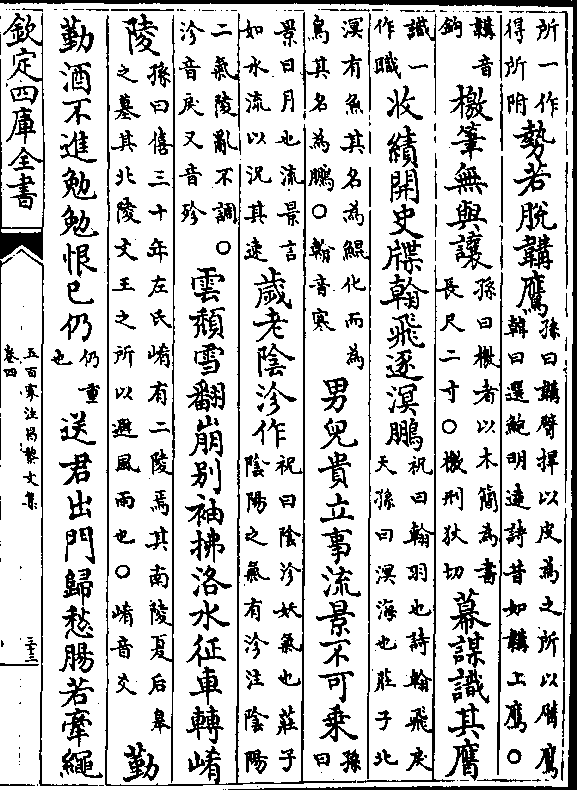 所一作得所附勢若脫韝鷹孫曰韝臂捍以皮為之所以臂鷹韓曰選鮑明遠詩昔如韝上鷹○
韝音鉤檄筆無與讓孫曰檄者以木簡為書長尺二寸○檄刑狄切幕謀識其膺
識一作職收績開史牒翰飛逐溟鵬祝曰翰羽也詩翰飛戾天孫曰溟海也莊子北
溟有魚其名為鯤化而為鳥其名為鵬○翰音寒男兒貴立事流景不可乗孫曰
景日月也流景言如水流以況其速歲老陰沴作祝曰陰沴妖氣也莊子陰陽之氣有沴注陰陽
二氣陵亂不調○沴音戾又音殄雲頽雪翻崩别袖拂洛水征車轉崤
陵孫曰僖三十年左氏崤有二陵焉其南陵夏后皋之墓其北陵文王之所以避風雨也○崤音交勤
勤酒不進勉勉恨已仍仍重也送君出門歸愁腸若牽繩
欽定四庫全書
五百家注昌黎文集
卷四
二十三